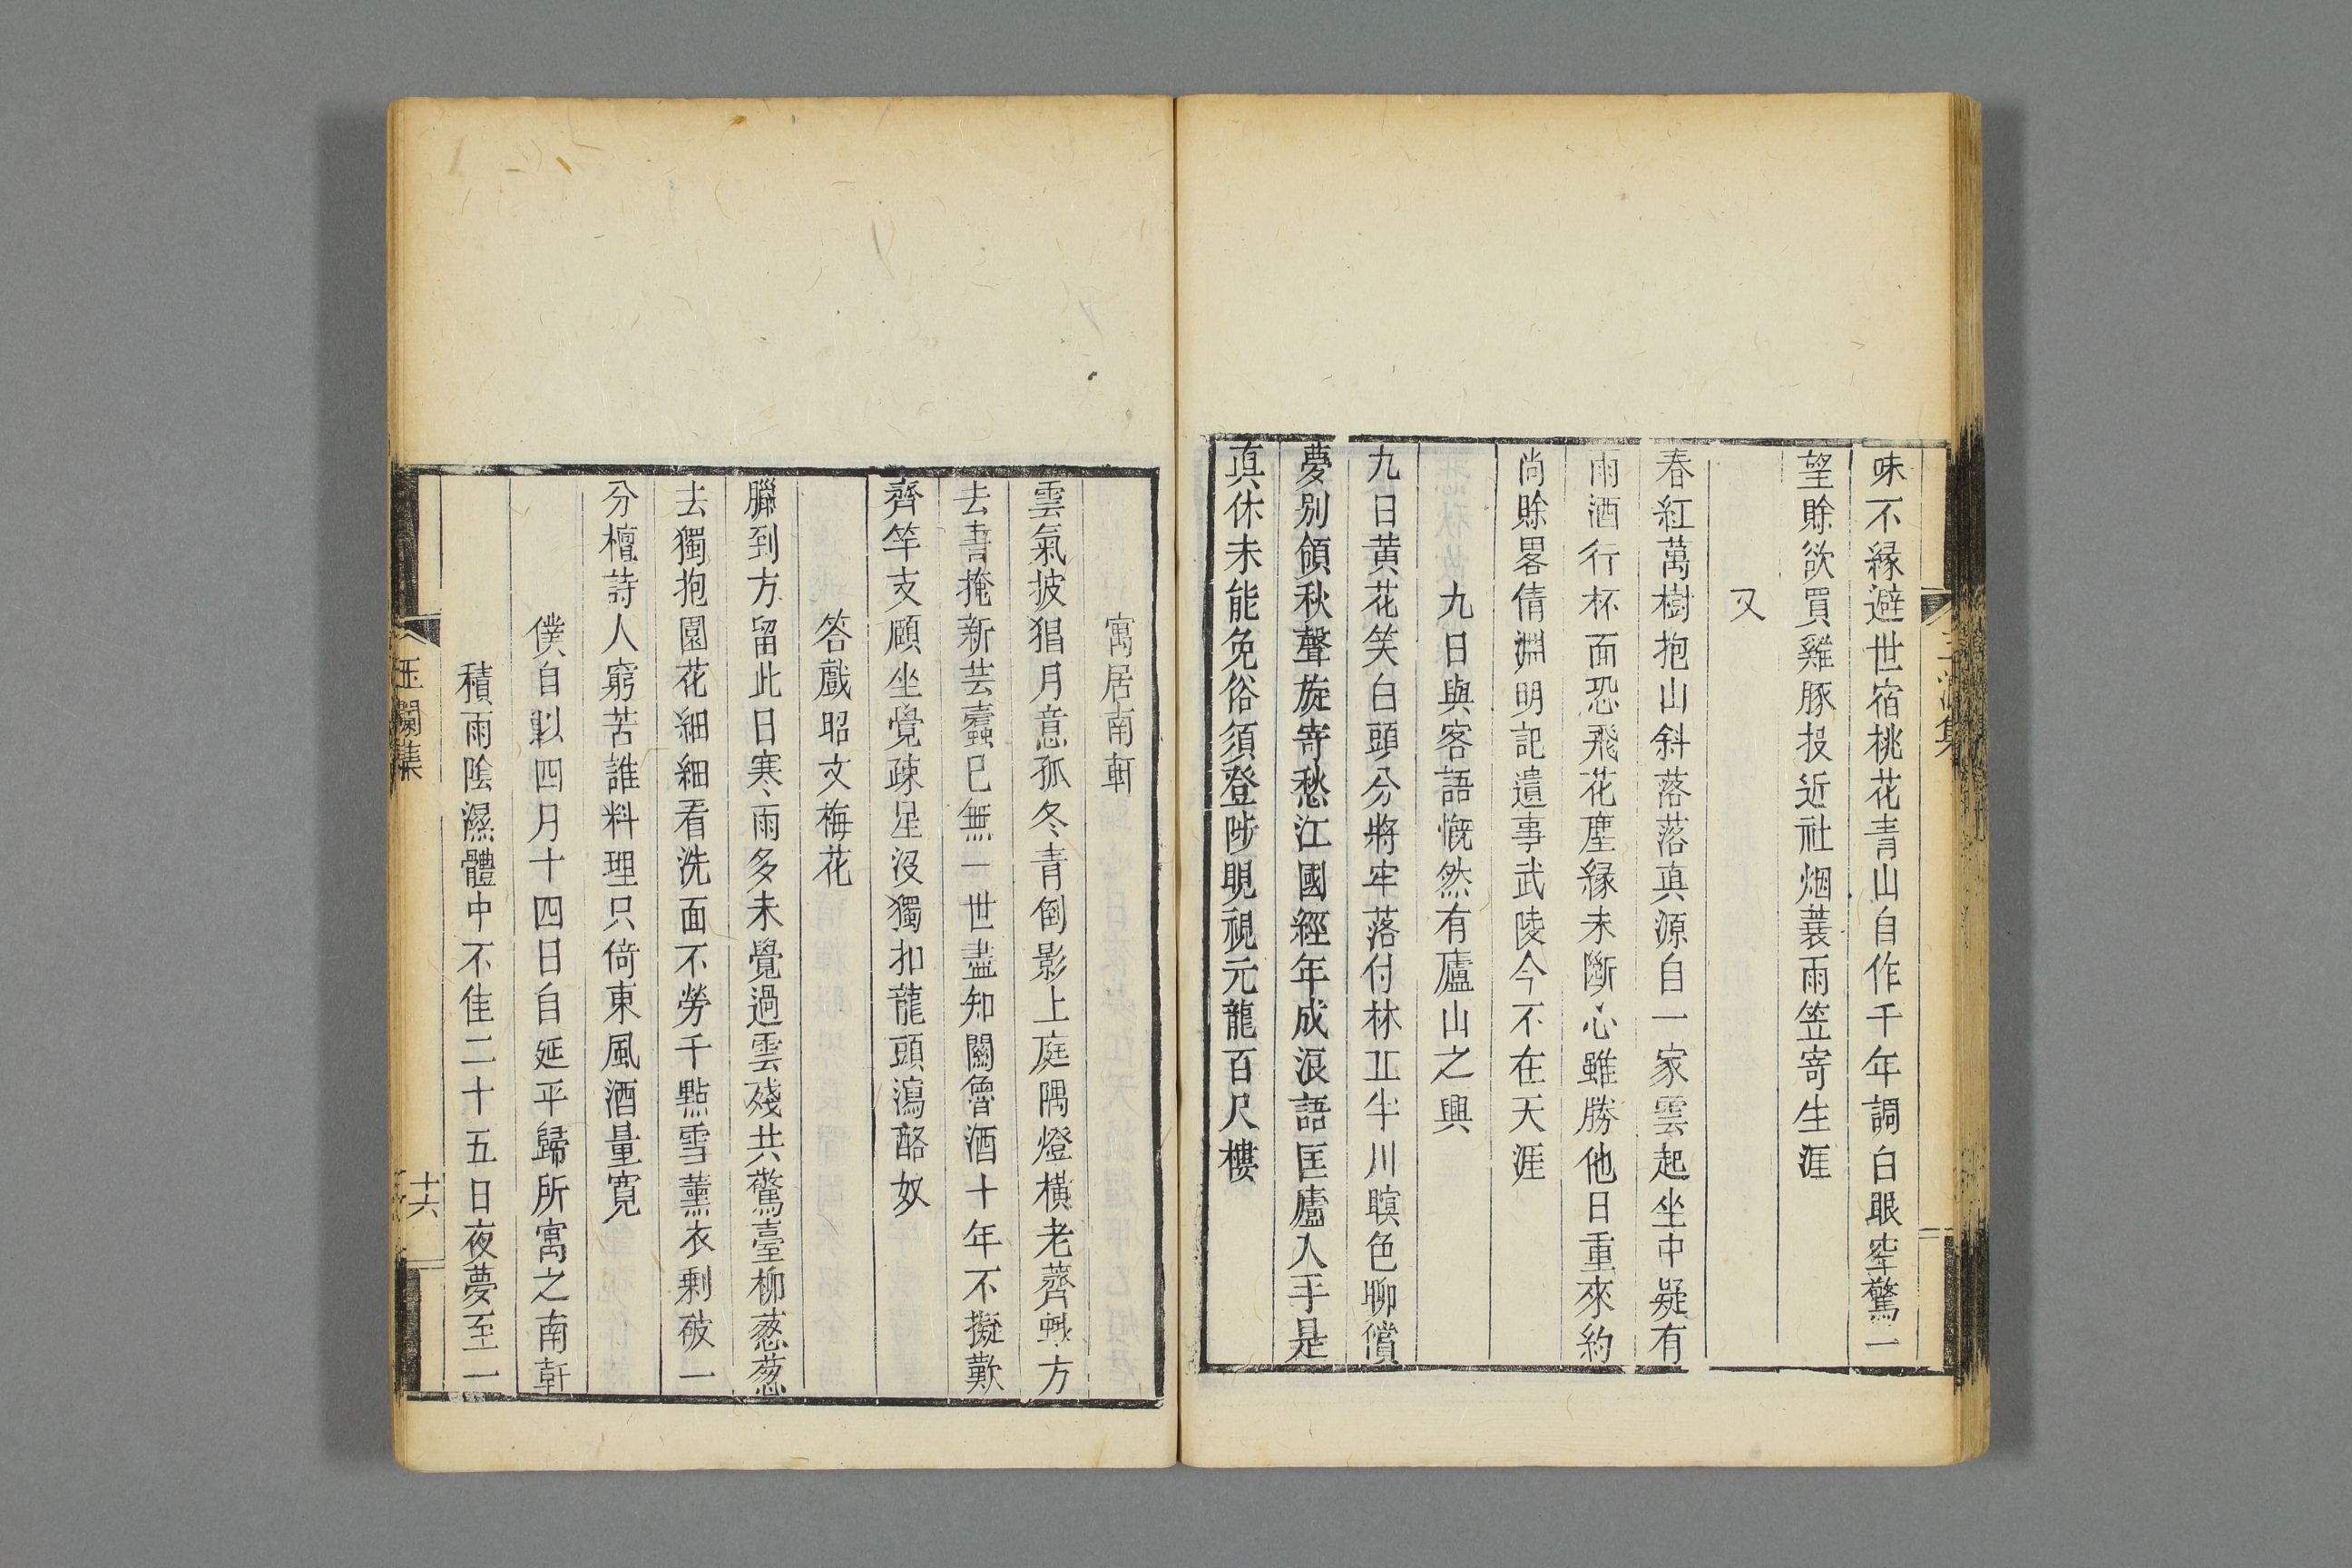 味不緣避世宿桃花青山自作千年調白眼牢驚一
望賒欲買雞豚投近社烟蓑雨笠寄生涯
又
春紅萬樹抱山斜落落真源自一家雲起坐中疑有
雨酒行杯面恐飛花塵緣未斷心雖勝他日重來約
尚賒畧倩淵明記遺事武陵今不在天涯
九日與客語慨然有廬山之興
九日黃花笑白頭分將牢落付林丘半川暝色聊償
夢別領秋聲旋寄愁江國經年成浪語匡廬入手是
真休未能免俗須登陟睍視元龍百尺樓
寓居南軒
雲氣披猖月意孤冬青倒影上庭隅燈橫老薺蛾方
去書掩新芸蠹已無一世盡知關魯酒十年不擬歎
齊竽支頤坐覺疎星沒獨扣龍頭瀉酪奴
答戲昭文梅花
臘到方留此日寒雨多未覺過雲殘共驚臺柳葱葱
去獨抱園花細細看洗面不勞千點雪薰衣剩破一
分檀詩人窮苦誰料理只倚東風酒量寬
僕自以四月十四日自延平歸所寓之南軒
積雨陰濕體中不佳二十五日夜夢至一
玉瀾集
十六